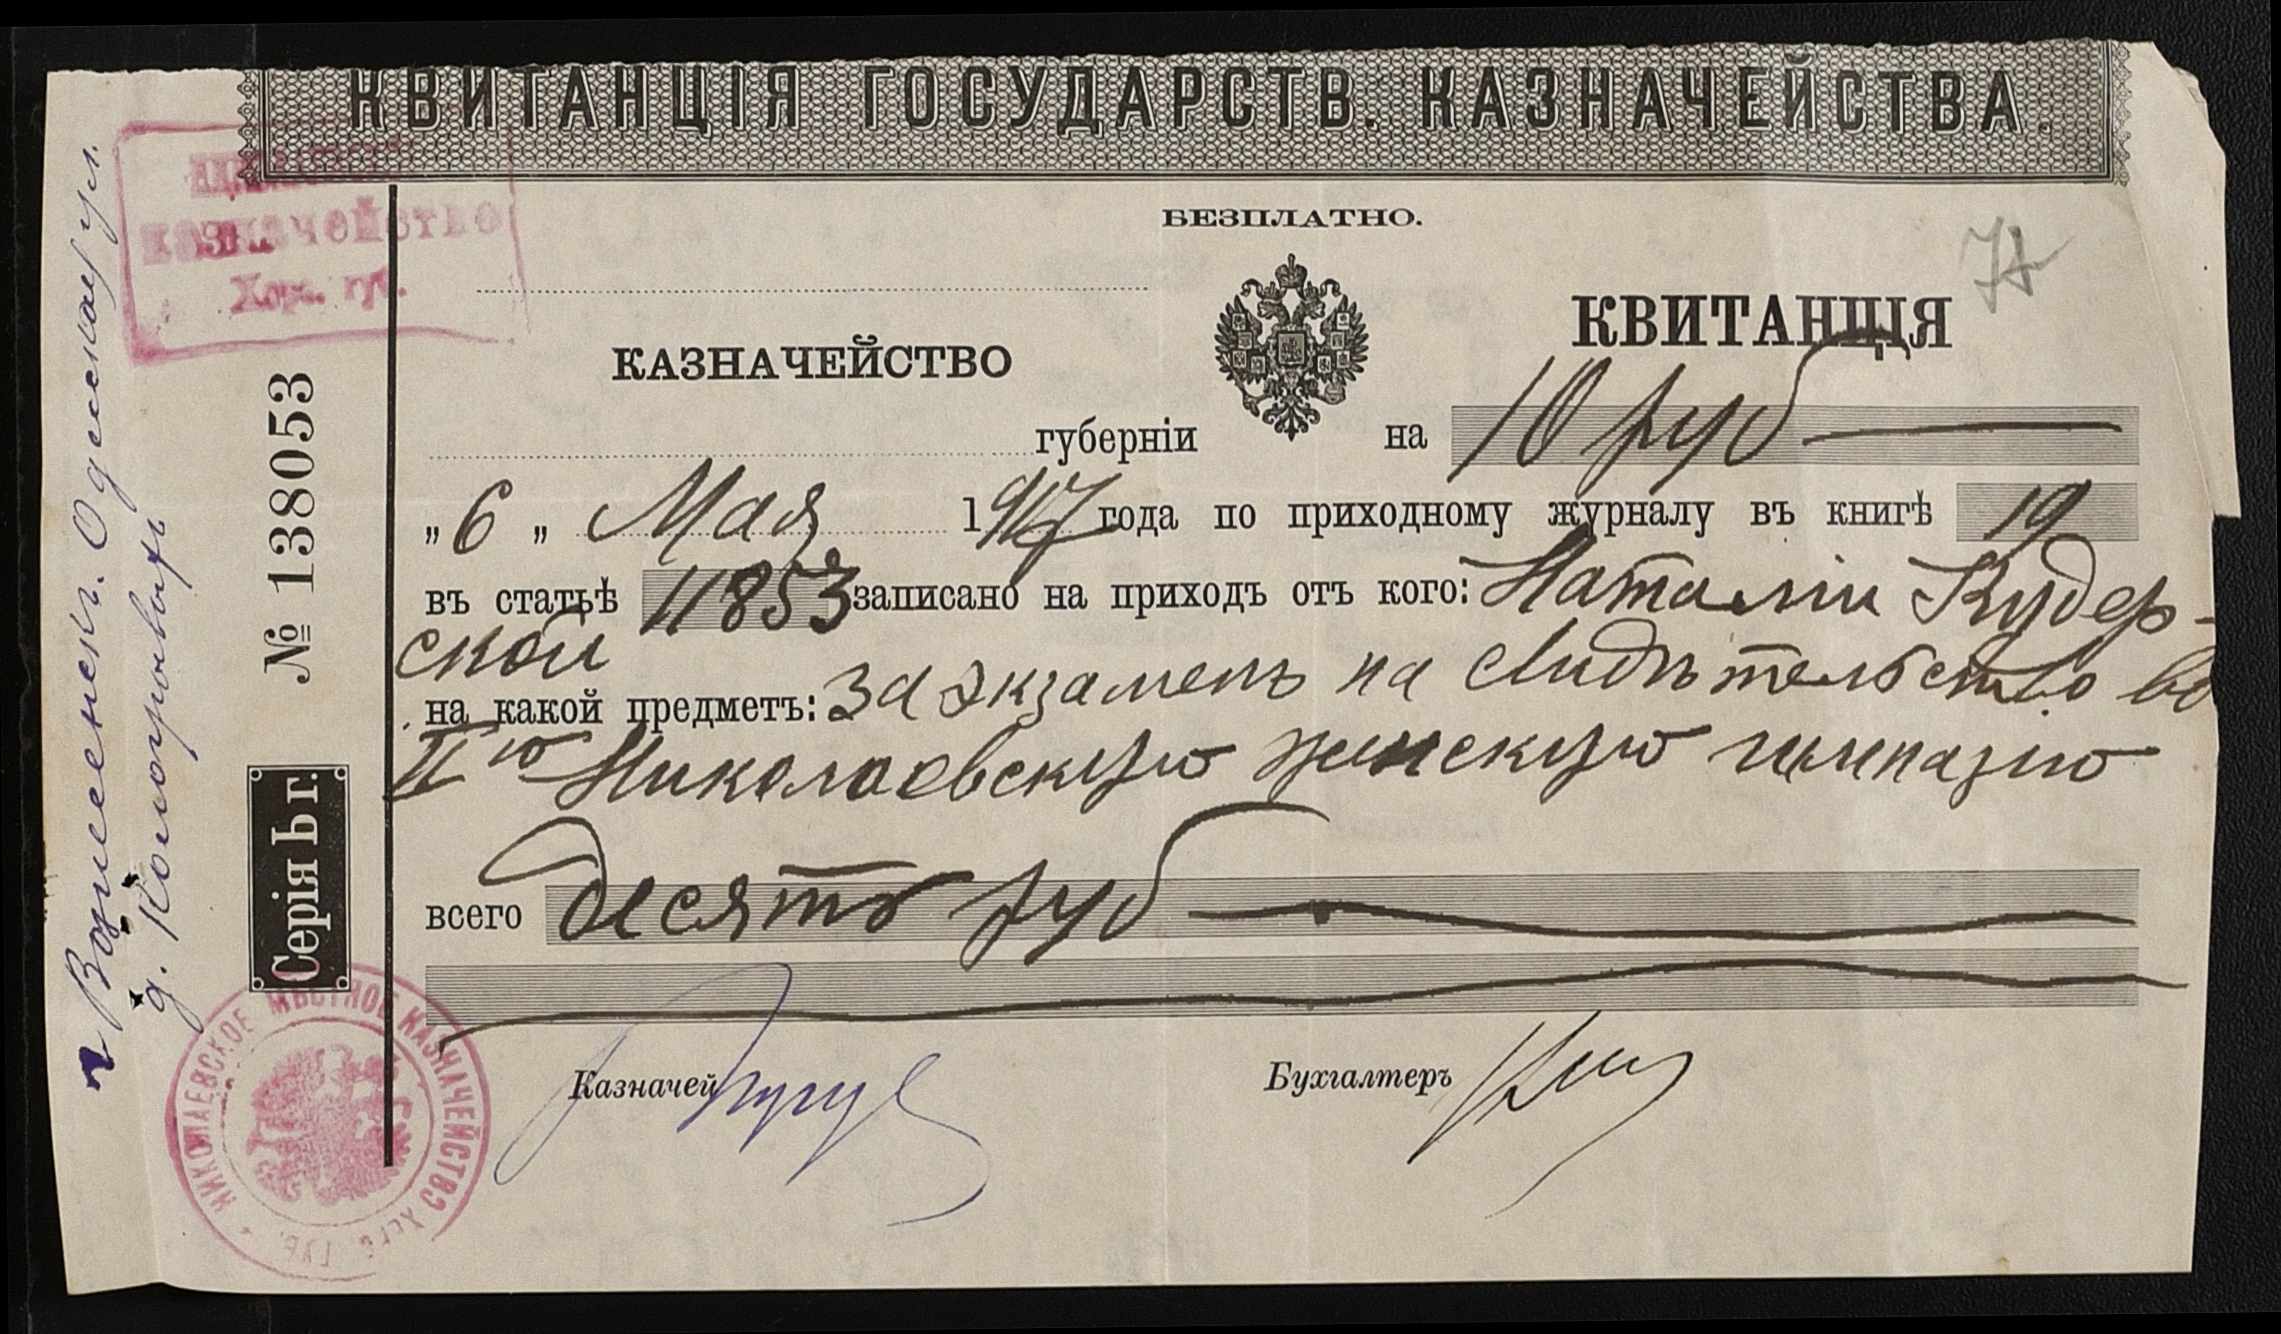 КВИТАНЦІЯ ГОСУДАРСТВ. КАЗНАЧЕЙСТВА.
КАЗНАЧЕЙСТВО
Херс. губ.
БЕЗПЛАТНО.
КАЗНАЧЕЙСТВО
КВИТАНЦІЯ
губерніи
на 10 руб
„ 6 „ Мая 1917 года по приходному журналу въ книгѣ 19
въ статьѣ 11853 записано на приходъ отъ кого: Наталіи Кудер-
ской
на какой предметъ: За экзаменъ на свидѣтельство во
IIую Николаевскую женскую гимназію
всего десять руб
Казначей
Бухгалтеръ
№ 138053
Серія Ьг.
г Вознесенск. Одесская ул.
д.
НИКОЛАЕВСКОЕ МѢСТНОЕ КАЗНАЧЕЙСТВО ХЕРС. ГУБ.